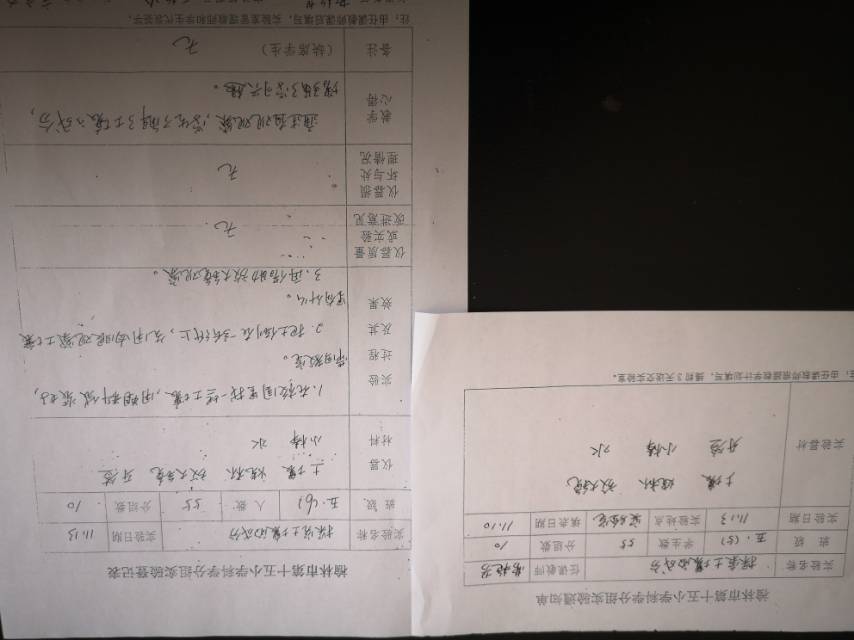 榆林市第十五小学科学分组实验登记表
实验名称 探究土壤的成分 实验日期 11.13
班级 五.(6) 人数 55 分组数 10
仪器材料 土壤 烧杯 放大镜 牙签
小棒 水
实验过程及其效果 1.在校园里找一些土壤,用塑料袋装好,
带回教室。
2.把土倒在一张纸上,先用肉眼观察土壤
里有什么。
3.再借助放大镜观察。
仪器质量或实验改进意见 无.
仪器损坏与处理情况 无
教学心得 通过自观观察,学生了解了土壤的成分,
增强了学习兴趣。
备注 (缺席学生) 无
注:由任课教师课后填写,实验室管理教师和学生代表签字。
榆林市第十五小学科学分组实验通知单
实验名称 探究土壤的成分 任课教师
班级 五.(5) 学生数 55 分组数 10
实验日期 11.13 实验地点 实验室 填表日期 11.10
实验器材 土壤 烧杯 放大镜
牙签 小棒 水
注:由任课教师根据教学计划填写,提前3天送交实验室。